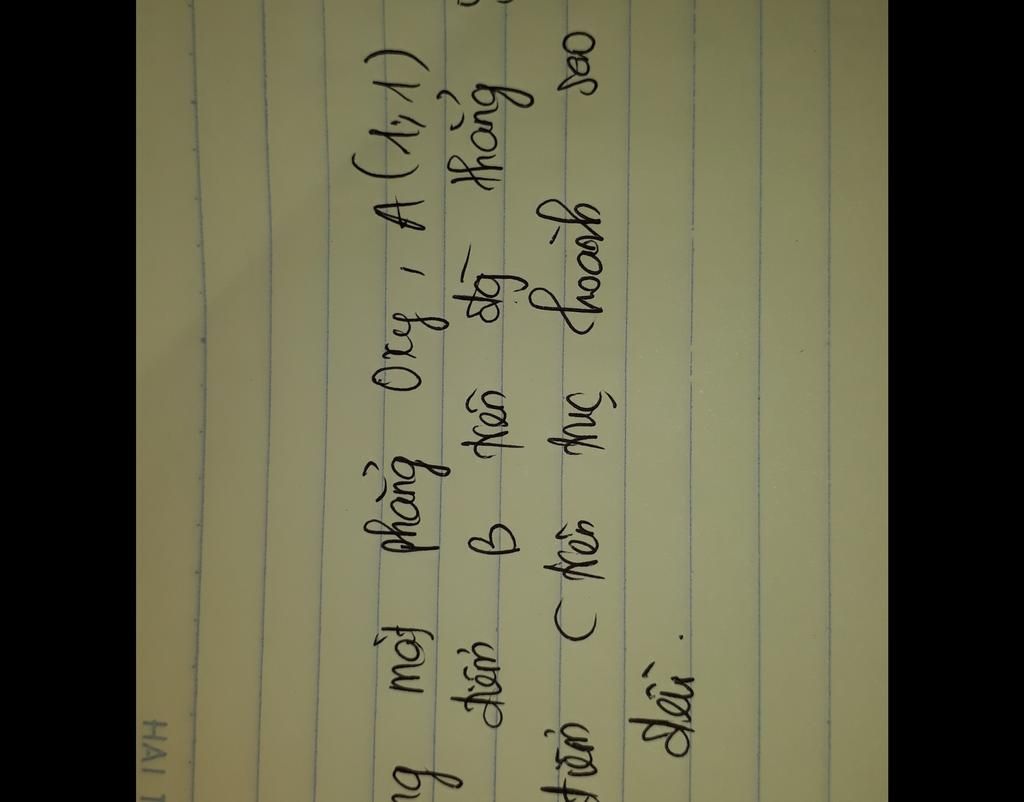 ng mặt phẳng Oxy, A(1;1)
điểm B trên đg thẳng
điểm C trên trục hoành sao
đều.
HAI T